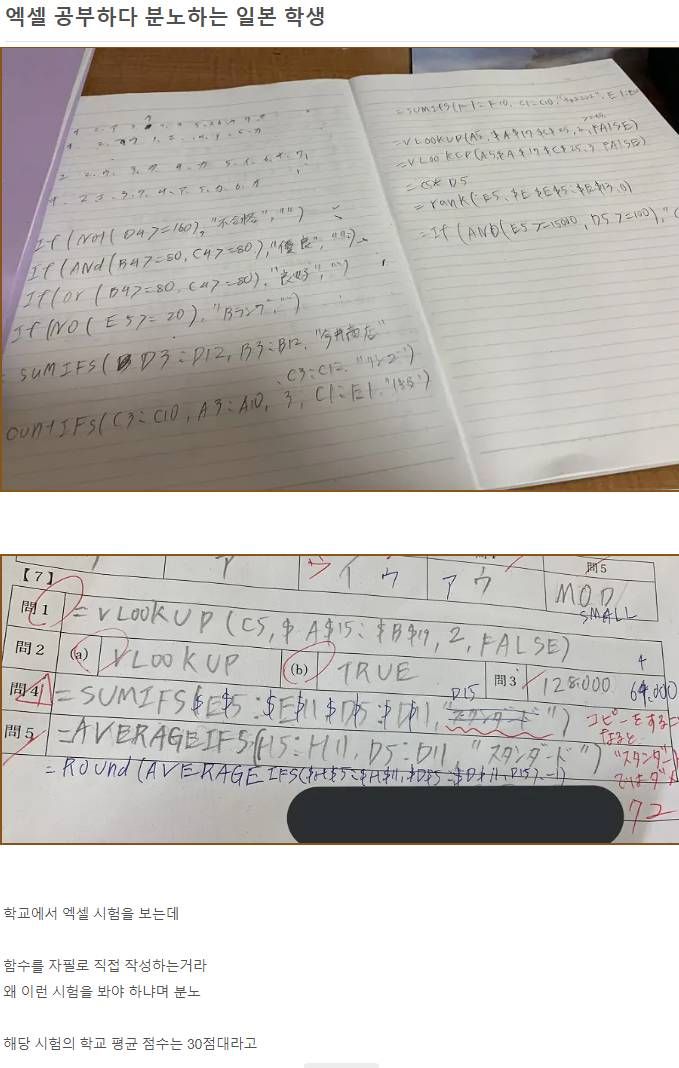 엑셀 공부하다 분노하는 일본 학생
If (Not( D4>=160), "不合格", "")
If (AND( B4>=80, C4>=80), "優良", "")
If (or ( B4>=80, C4>=80), "良好", "")
If (NO( E5>= 20), "Bランク", "")
= SUMIFS( D3:D12, B3:B12, "今井商店"
, C3:C12, "リンゴ")
ountIFs( C3:C10, A3:A10, 3, C1:E1,
= VLOOKUP(A5, $A$17:$C$25, 2, FALSE)
= VLOOKUP(A5, $A$17:$C$25, 3, FALSE)
= C5* D5
= rank( E5, $E$5:$E$13, 0)
= If (AND( E5>=15000, D5>=100), "
【7】
ア イ ウ ア ウ
問5
MOD
SMALL
問1 = VLOOKUP (C5, $A$15:$B$19, 2, FALSE)
問2 (a) VLOOKUP (b) TRUE 問3 128.000 64.000
問4 = SUMIFS($E$5:$E$11, $D$5:$D$11, "スタンダード") D15
コピーをする
なると
"スタンダード
ではダメ
問5 = AVERAGEIFS(H5:H11, D5:D11, "スタンダード")
= Round(AVERAGEIFS($H$5:$H$11, $D$5:$D$11, D15), -1)
72
학교에서 엑셀 시험을 보는데
함수를 자필로 직접 작성하는거라
왜 이런 시험을 봐야 하냐며 분노
해당 시험의 학교 평균 점수는 30점대라고